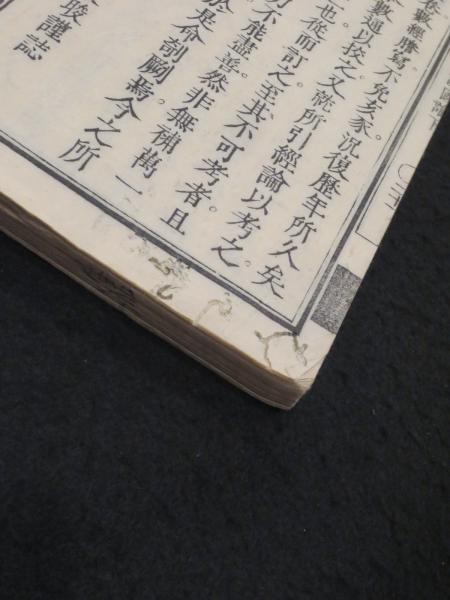 數經謄寫不免亥豕。況復歷年所久矣
數通以挍之又就所引經論以考之。
也從而訂之至其不可考者且
不能盡善然非無補萬一
於是命剞劂焉今之所
晙謹誌